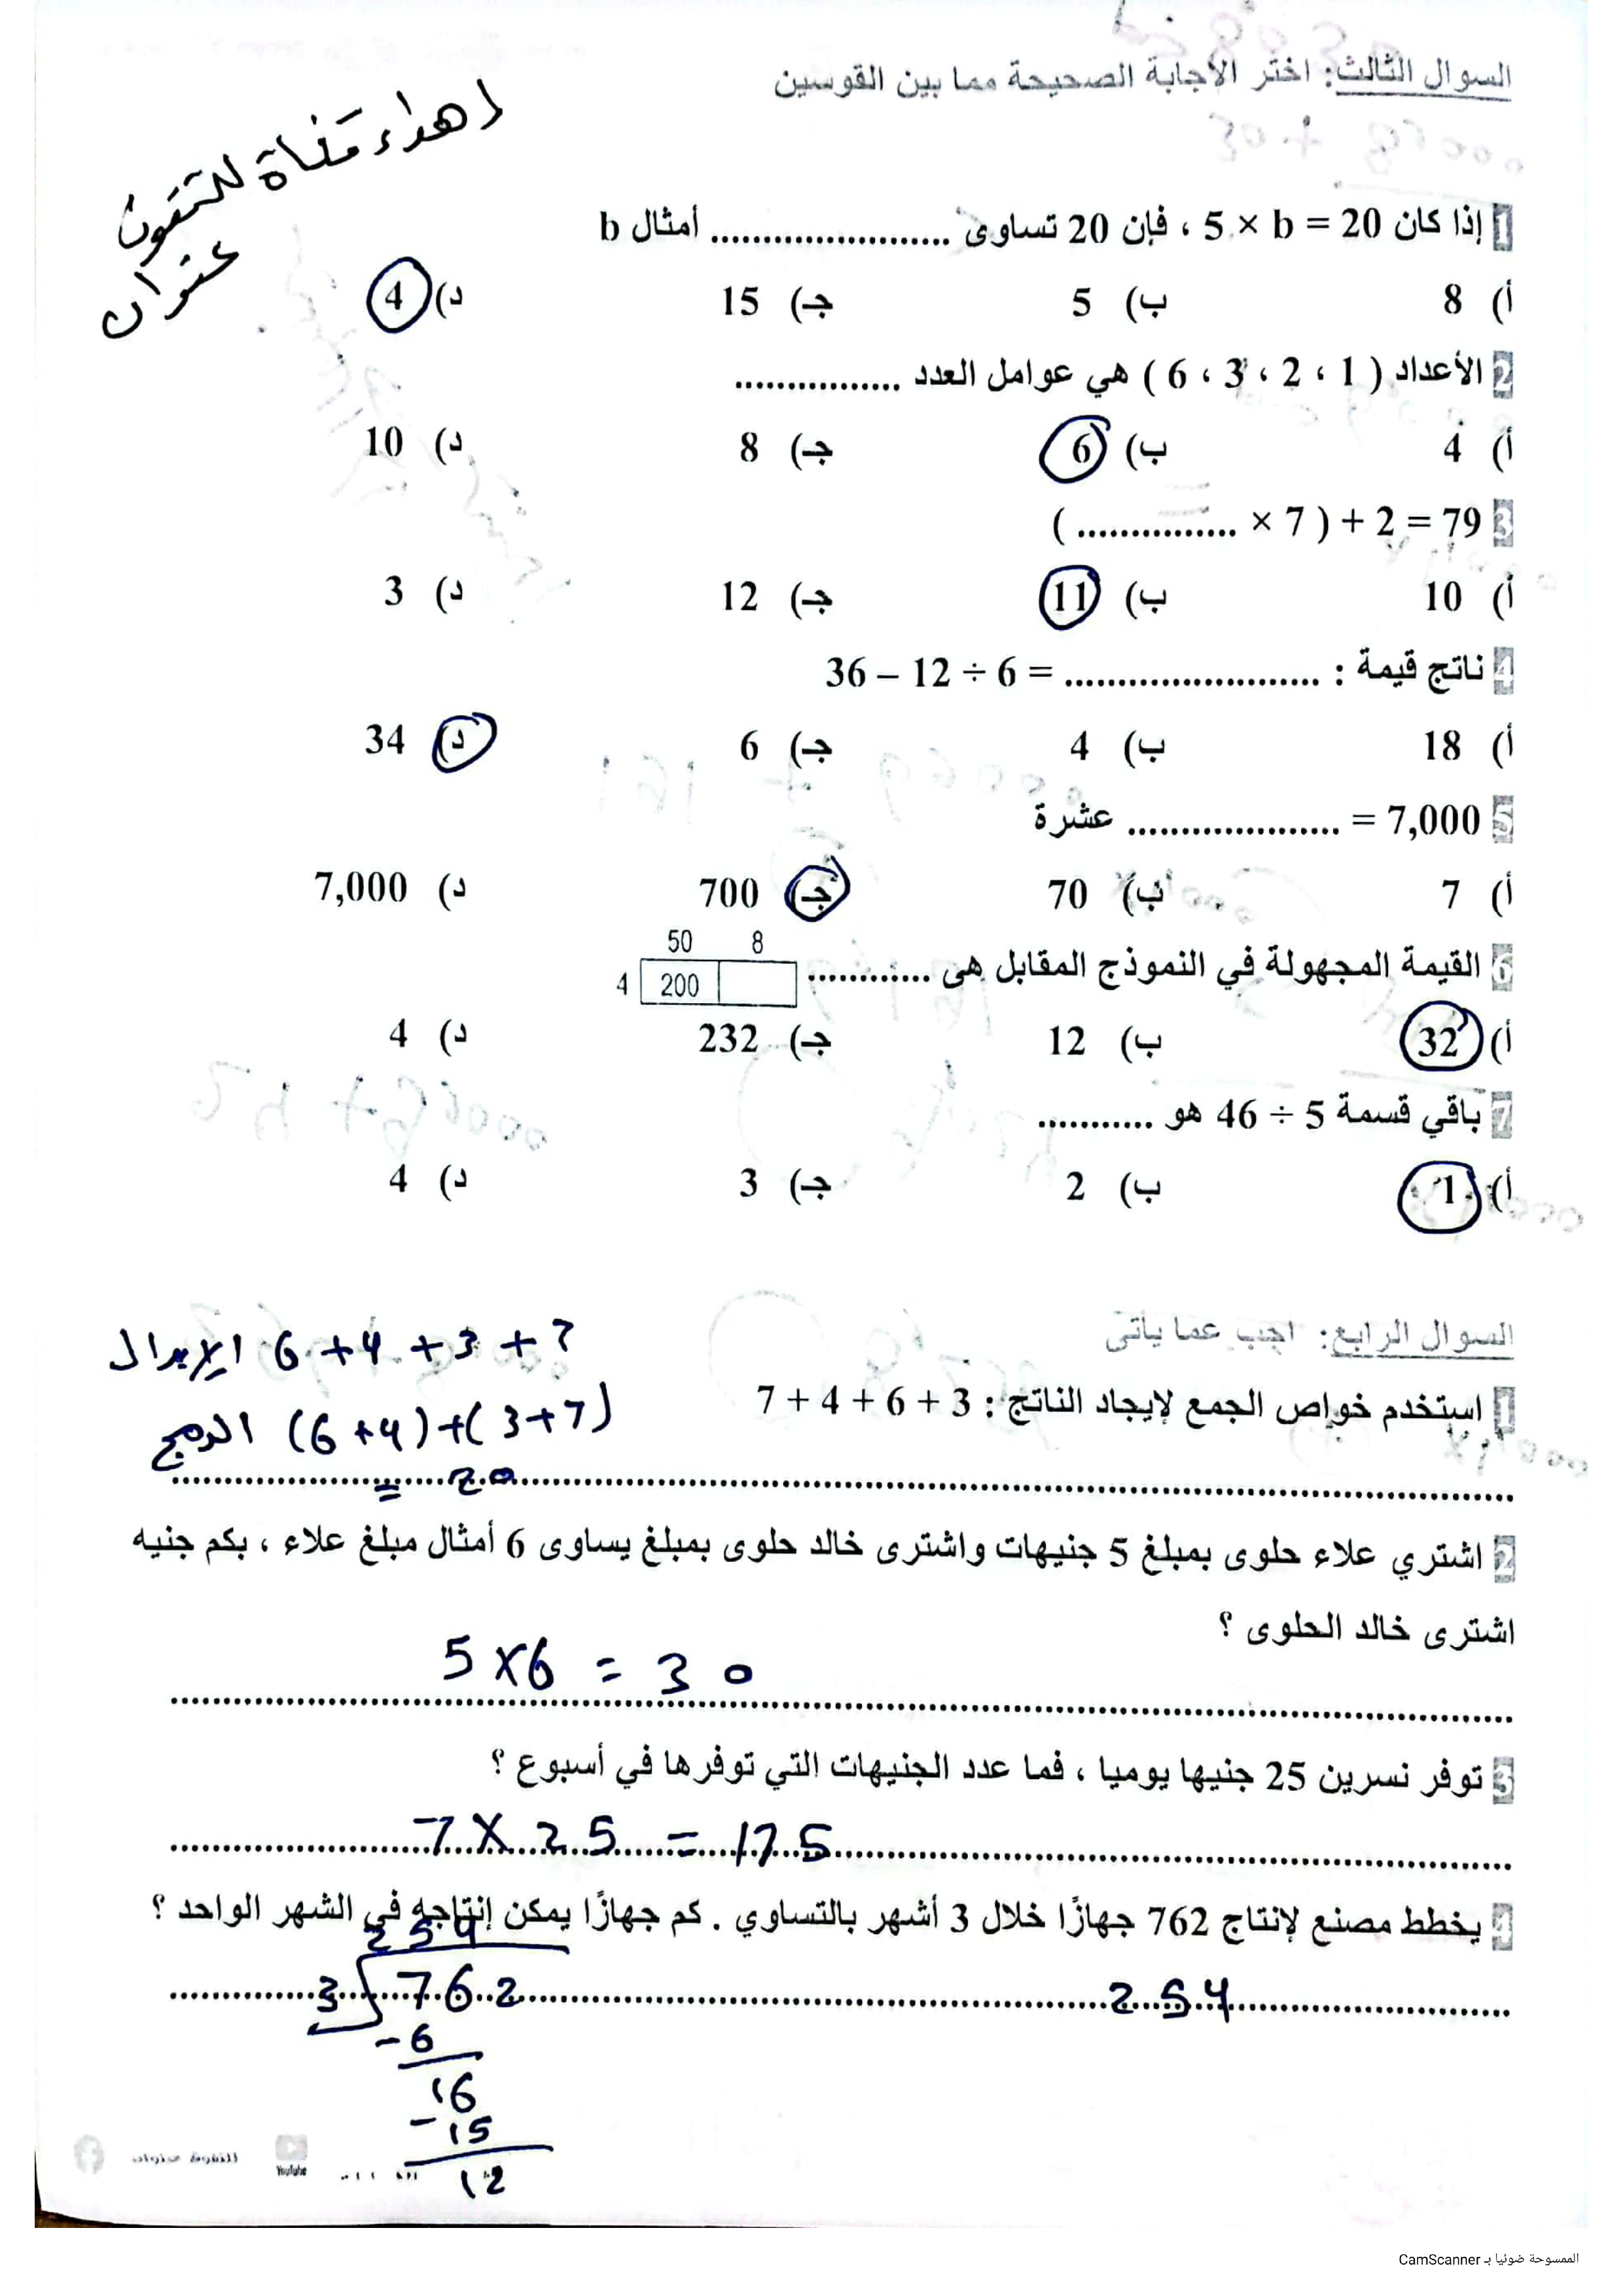 السؤال الثالث: اختر الاجابة الصحيحة مما بين القوسين
اهداء قناة للتفوق عنوان
1 إذا كان 5 × b = 20 ، فإن 20 تساوى ....................... أمثال b
أ) 8 ب) 5 جـ) 15 د) 4
2 الأعداد ( 1 ، 2 ، 3 ، 6 ) هي عوامل العدد ................
أ) 4 ب) 6 جـ) 8 د) 10
3 ( ............... × 7 ) + 2 = 79
أ) 10 ب) 11 جـ) 12 د) 3
4 ناتج قيمة : ........................ = 36 – 12 ÷ 6
أ) 18 ب) 4 جـ) 6 د) 34
5 7,000 = .................... عشرة
أ) 7 ب) 70 جـ) 700 د) 7,000
6 القيمة المجهولة في النموذج المقابل هى ............
50 8
4 200
أ) 32 ب) 12 جـ) 232 د) 4
7 باقي قسمة 5 ÷ 46 هو ...........
أ) 1 ب) 2 جـ) 3 د) 4
السؤال الرابع: اجب عما يأتى
6 + 4 + 3 + 7 الإبدال
1 استخدم خواص الجمع لإيجاد الناتج : 7 + 4 + 6 + 3
(6 + 4) + (3 + 7) الدمج
= 20
2 اشتري علاء حلوى بمبلغ 5 جنيهات واشترى خالد حلوى بمبلغ يساوى 6 أمثال مبلغ علاء ، بكم جنيه
اشترى خالد الحلوى ؟
5 × 6 = 30
3 توفر نسرين 25 جنيها يوميا ، فما عدد الجنيهات التي توفرها في أسبوع ؟
7 × 25 = 175
4 يخطط مصنع لإنتاج 762 جهازًا خلال 3 أشهر بالتساوي . كم جهازًا يمكن إنتاجه في الشهر الواحد ؟
254
254
3 762
- 6
16
- 15
12
YouTube
الممسوحة ضوئيا بـ CamScanner